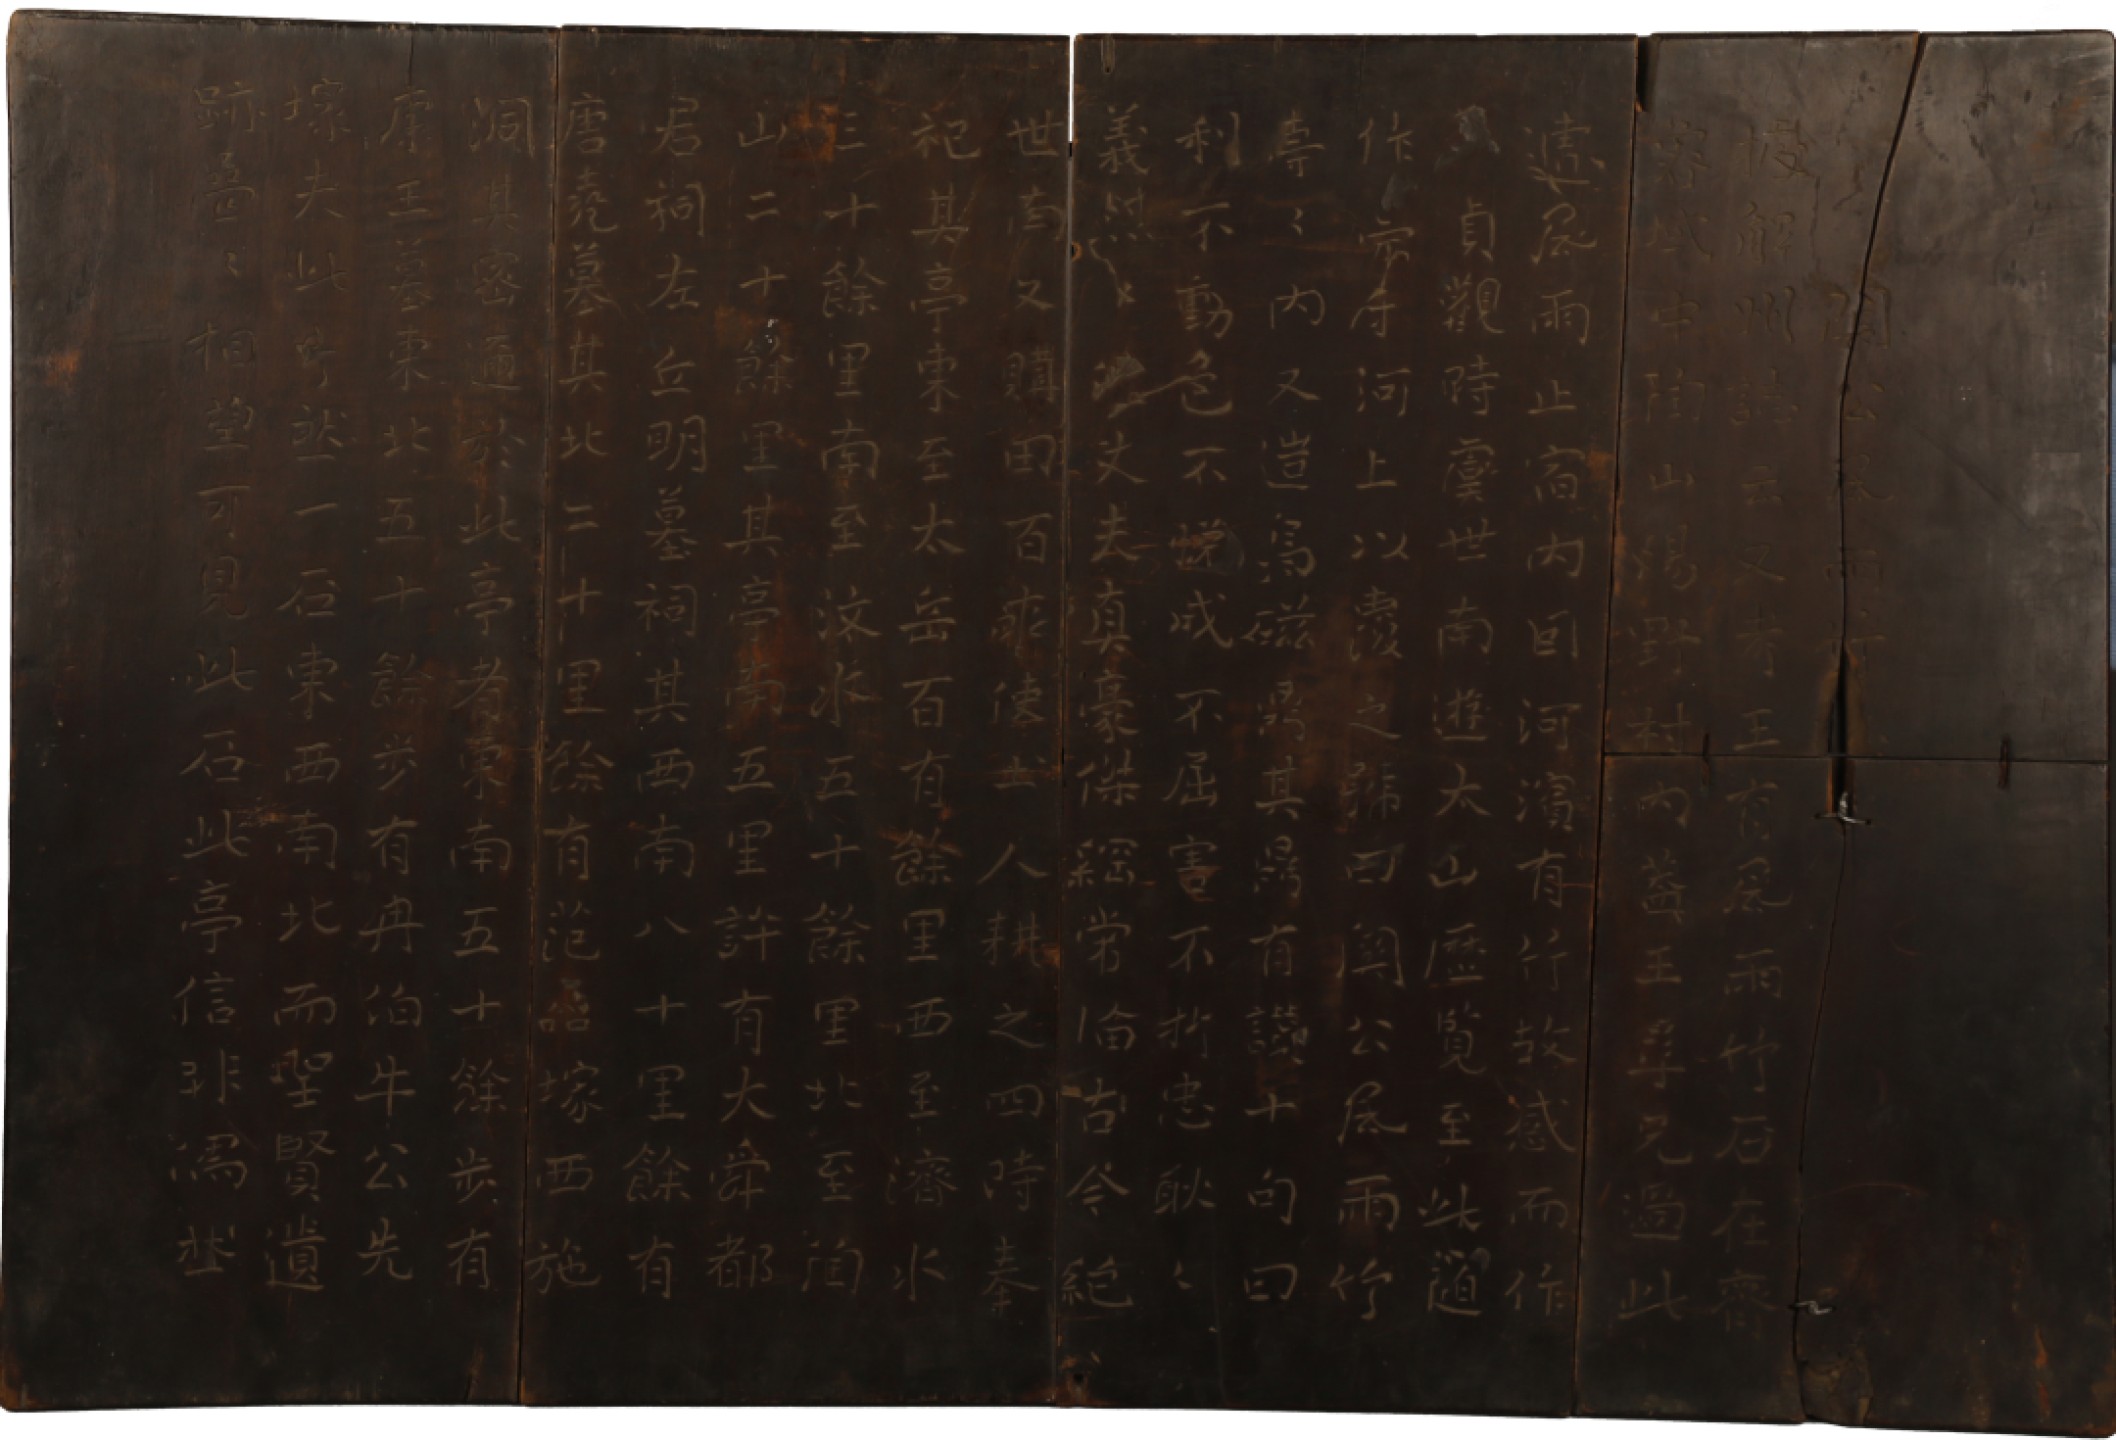 關公風雨竹
按解州誌云又考王有風雨竹石在齊
域中陶山陽野村內蓋王尋兄過此
遽風雨止宿內回河濱有竹故感而作
貞觀時虞世南遊太山歷覽至此隨
作亭河上以覆之歸曰關公風雨竹
壽々內又造爲磁鼎其鼎有讚十句曰
利不動色不成不屈害不折忠耿々
義烈丈夫真豪傑綱常倫古今絕
世南又購田百使土人耕之四時奉
祀其亭東至太岳百有餘里西至濟水
三十餘里南至汶水五十餘里北至陶
山二十餘里其亭南五里許有大舜都
君祠左丘明墓祠其西南八十里餘有
唐堯墓其北二十里餘有范塚西施
洞其密邇於此亭者東南五十餘步有
康王墓東北五十餘步有冉伯牛公先
塚夫此兮然一石東西南北而聖賢遺
跡啚々相望可見此石此亭信非濡